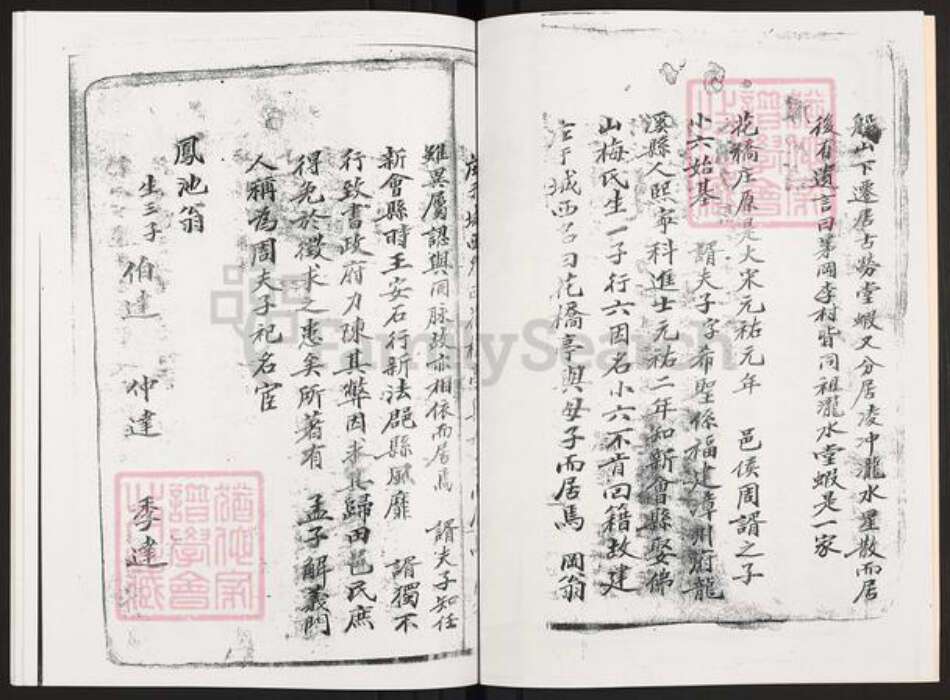 山下遷居古勞堂蝦又分居凌冲瀧水星散而居
後有遺言曰茅岡李村皆同祖瀧水堂蝦是一家
花橋庄原是大宋元祐元年 邑侯周諝之子
小六始基 諝夫子字希聖係福建漳州府龍
溪縣人熙寧科進士元祐二年知新會縣娶佛
山梅氏生一子行六因名小六不肯回籍故建
庄于城西名曰花橋亭與母子而居焉 岡翁
雖異屬認與同脉故亦相依而居焉 諝夫子知任
新會縣時王安石行新法郡縣風靡 諝獨不
行致書政府力陳其弊因求其歸田邑民庶
得免於徵求之患矣所著有 孟子解義門
人稱為周夫子祀名宦
鳳池翁
生三子 伯達 仲達 季達
FamilySearch